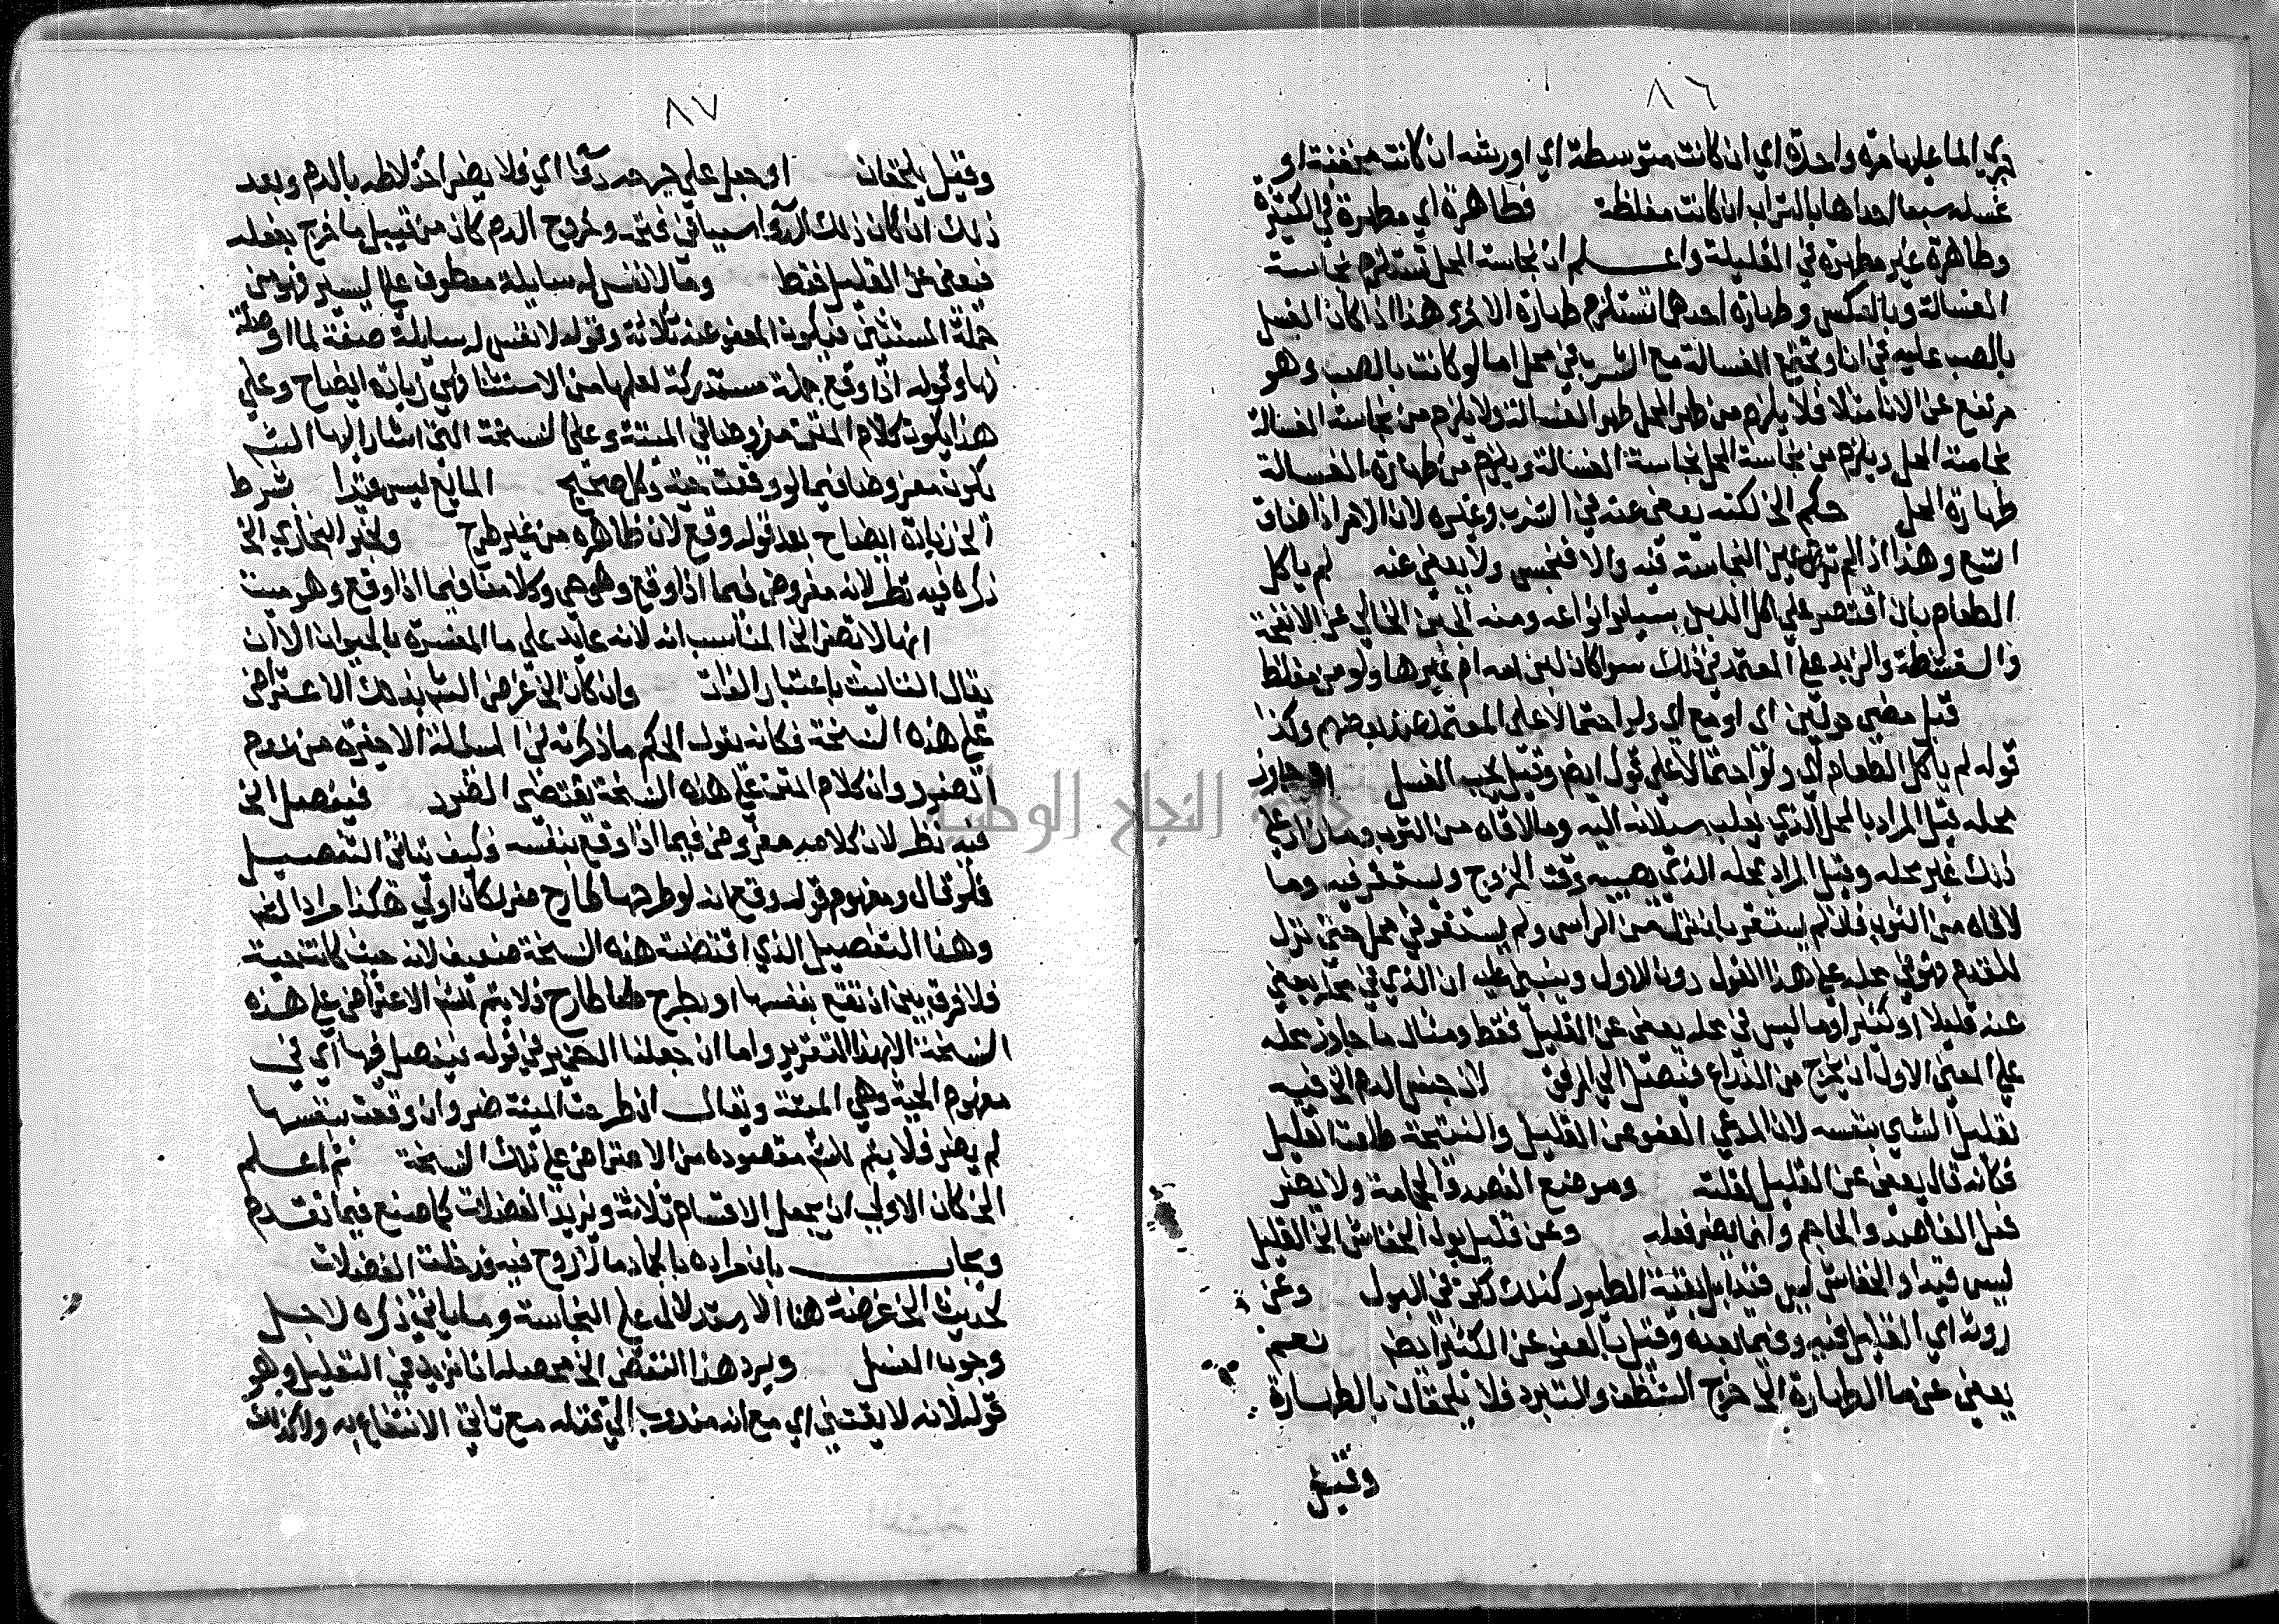 ٨٦
جري الما عليها مرة واحدة اي ان كانت متوسطة اي او رشه ان كانت مخففة او
غسله سبعا احداها بالتراب ان كانت مغلظة فطاهرة اي مطهرة في الكثيرة
وطاهرة غير مطهرة في القليلة واعلم ان نجاسة المحل تستلزم نجاسة
الغسالة وبالعكس وطهارة احدهما تستلزم طهارة الاخرى هذا اذا كان الغسل
بالصب عليه في انا وتجتمع الغسالة مع الثوب في محل اما لو كانت بالصب وهو
مرتفع عن الانا مثلا فلا يلزم من طهر المحل طهر الغسالة ولا يلزم من نجاسة الغسالة
نجاسة المحل ويلزم من نجاسة المحل نجاسة الغسالة ويلزم من طهارة الغسالة
طهارة المحل حكم الخ لكنه يعفى عنه في الثوب وغيره لان الامر اذا ضاق
اتسع وهذا اذا لم تر عين النجاسة فيه والا فنجس ولا يعفى عنه لم ياكل
الطعام بان اقتصر على اكل اللبن بسيار انواعه ومنه الجبن الخالي عن الانفحة
والقشطة والزبد على المعتمد في ذلك سوا كان لبن امه ام غيرها ولو من مغلظ
قبل مضي حولين اي او مع اي ولو احتمالا على المعتمد عند بعضهم وكذا
قوله لم ياكل الطعام اي ولو احتمالا على قول ايض وقيل يجب الغسل او جاوز
محله قيل المراد بالمحل الذي يغلب سيلانه اليه وما لاقاه من الثوب وما زاد على
ذلك غير محله وقيل المراد بمحله الذي يصيبه وقت الخروج ويستقر فيه وما
لاقاه من الثوب فلو لم يستقر بان نزل من الراس ولم يستقر في محل حتى نزل
للقدم فهو في محله على هذا القول دون الاول وينبني عليه ان الذي في محله يعفى
عنه قليلا او كثيرا وما ليس في محله يعفى عن القليل فقط ومثال ما جاوز محله
على المعنى الاول ان يخرج من الذراع فيصل الي المرفق لان جنس الدم الخ فيه
تعليل الشي بنفسه لان المدعي العفو عن القليل والنتيجة طلعت القليل
فكانه قال يعفى عن القليل لقلته وموضع الفصد والحجامة ولا يضر
فعل الفاصد والحاجم وانما يضر فعله وعن قليل بول الخفاش الخ القليل
ليس قيدا والخفاش ليس قيدا بل بقية الطيور كذلك لكن في البول وعن
روث اي القليل فيه وفيما بعده وقيل بالعفو عن الكثير ايض نعم
يعفى عن ما الطهارة الخ خرج التنظف والتبرد فلا يلحقان بالطهارة
وقيل
٨٧
وقيل يلحقان او جعل على جرحه دوا اي فلا يضر اختلاطه بالدم وبعد
ذلك ان كان ذلك الدوا سببا في فتق وخروج الدم كان من قبيل ما خرج بفعله
فيعفى عن القليل فقط وما لا نفس له سايلة معطوف على اليسير فهو من
جملة المستثنى فيكون المعفو عنه ثلاثة وقوله لا نفس له سايلة صفة لما او صلة
لها وقوله اذا وقع جملة مستدركة لعلمها من الاستثنا فهي زيادة ايضاح وعلى
هذا يكون كلام المتن مفروضا في الميتة وعلى النسخة التي اشار اليها الش
يكون مفروضا فيما لو وقعت حية وكل صحيح المايع ليس قيدا شرط
الخ زيادة ايضاح بعد قوله وقع لان ظاهره من غير طرح ولخبر البخاري الخ
ذكره فيه نظر لانه مفروض فيما اذا وقع وهو حي وكلامنا فيما اذا وقع وهو ميت
انها لا تضر الخ المناسب انه لانه عايد على ما المفسرة بالحيوان الا ان
يقال التانيث باعتبار الذات وان كان الخ غرض الش بذلك الاعتراض
على هذه النسخة فكانه يقول الحكم ما ذكرته في المسالة الاخيرة من عدم
الضرر وان كلام المتن على هذه النسخة يقتضي الضرر فيفصل الخ
فيه نظر لان كلامه مفروض فيما اذا وقع بنفسه وكيف يتاتى التفصيل
فلو قال ومفهوم قوله وقع انه لو طرحها طارح ضر لكان اولى هكذا مراد الش
وهذا التفصيل الذي اقتضته هذه النسخة ضعيف لانه حيث كانت حية
فلا فرق بين ان تقع بنفسها او يطرحها طارح فلا يتم للش الاعتراض على هذه
النسخة الا بهذا التقرير واما ان جعلنا الضمير في قوله فيفصل فيها اي في
مفهوم الحية وهي الميتة ويقال ان طرحت الميتة ضر وان وقعت بنفسها
لم يضر فلا يتم للش مقصوده من الاعتراض على تلك النسخة ثم اعلم
الخ كان الاولى ان يجعل الاقسام ثلاثة ويزيد الفضلات كما صنع فيما تقدم
ويجاب بان مراده بالجماد ما لا روح فيه فدخلت الفضلات
لحديث الخ غرضه هنا الاستدلال على النجاسة وما ياتي ذكره لاجل
وجوب الغسل ويرد هذا النقض الخ محصله انا نزيد في التعليل وهو
قوله لانه لا يقتنى اي مع انه مندوب الي قتله مع تاتي الانتفاع به ولا كذلك